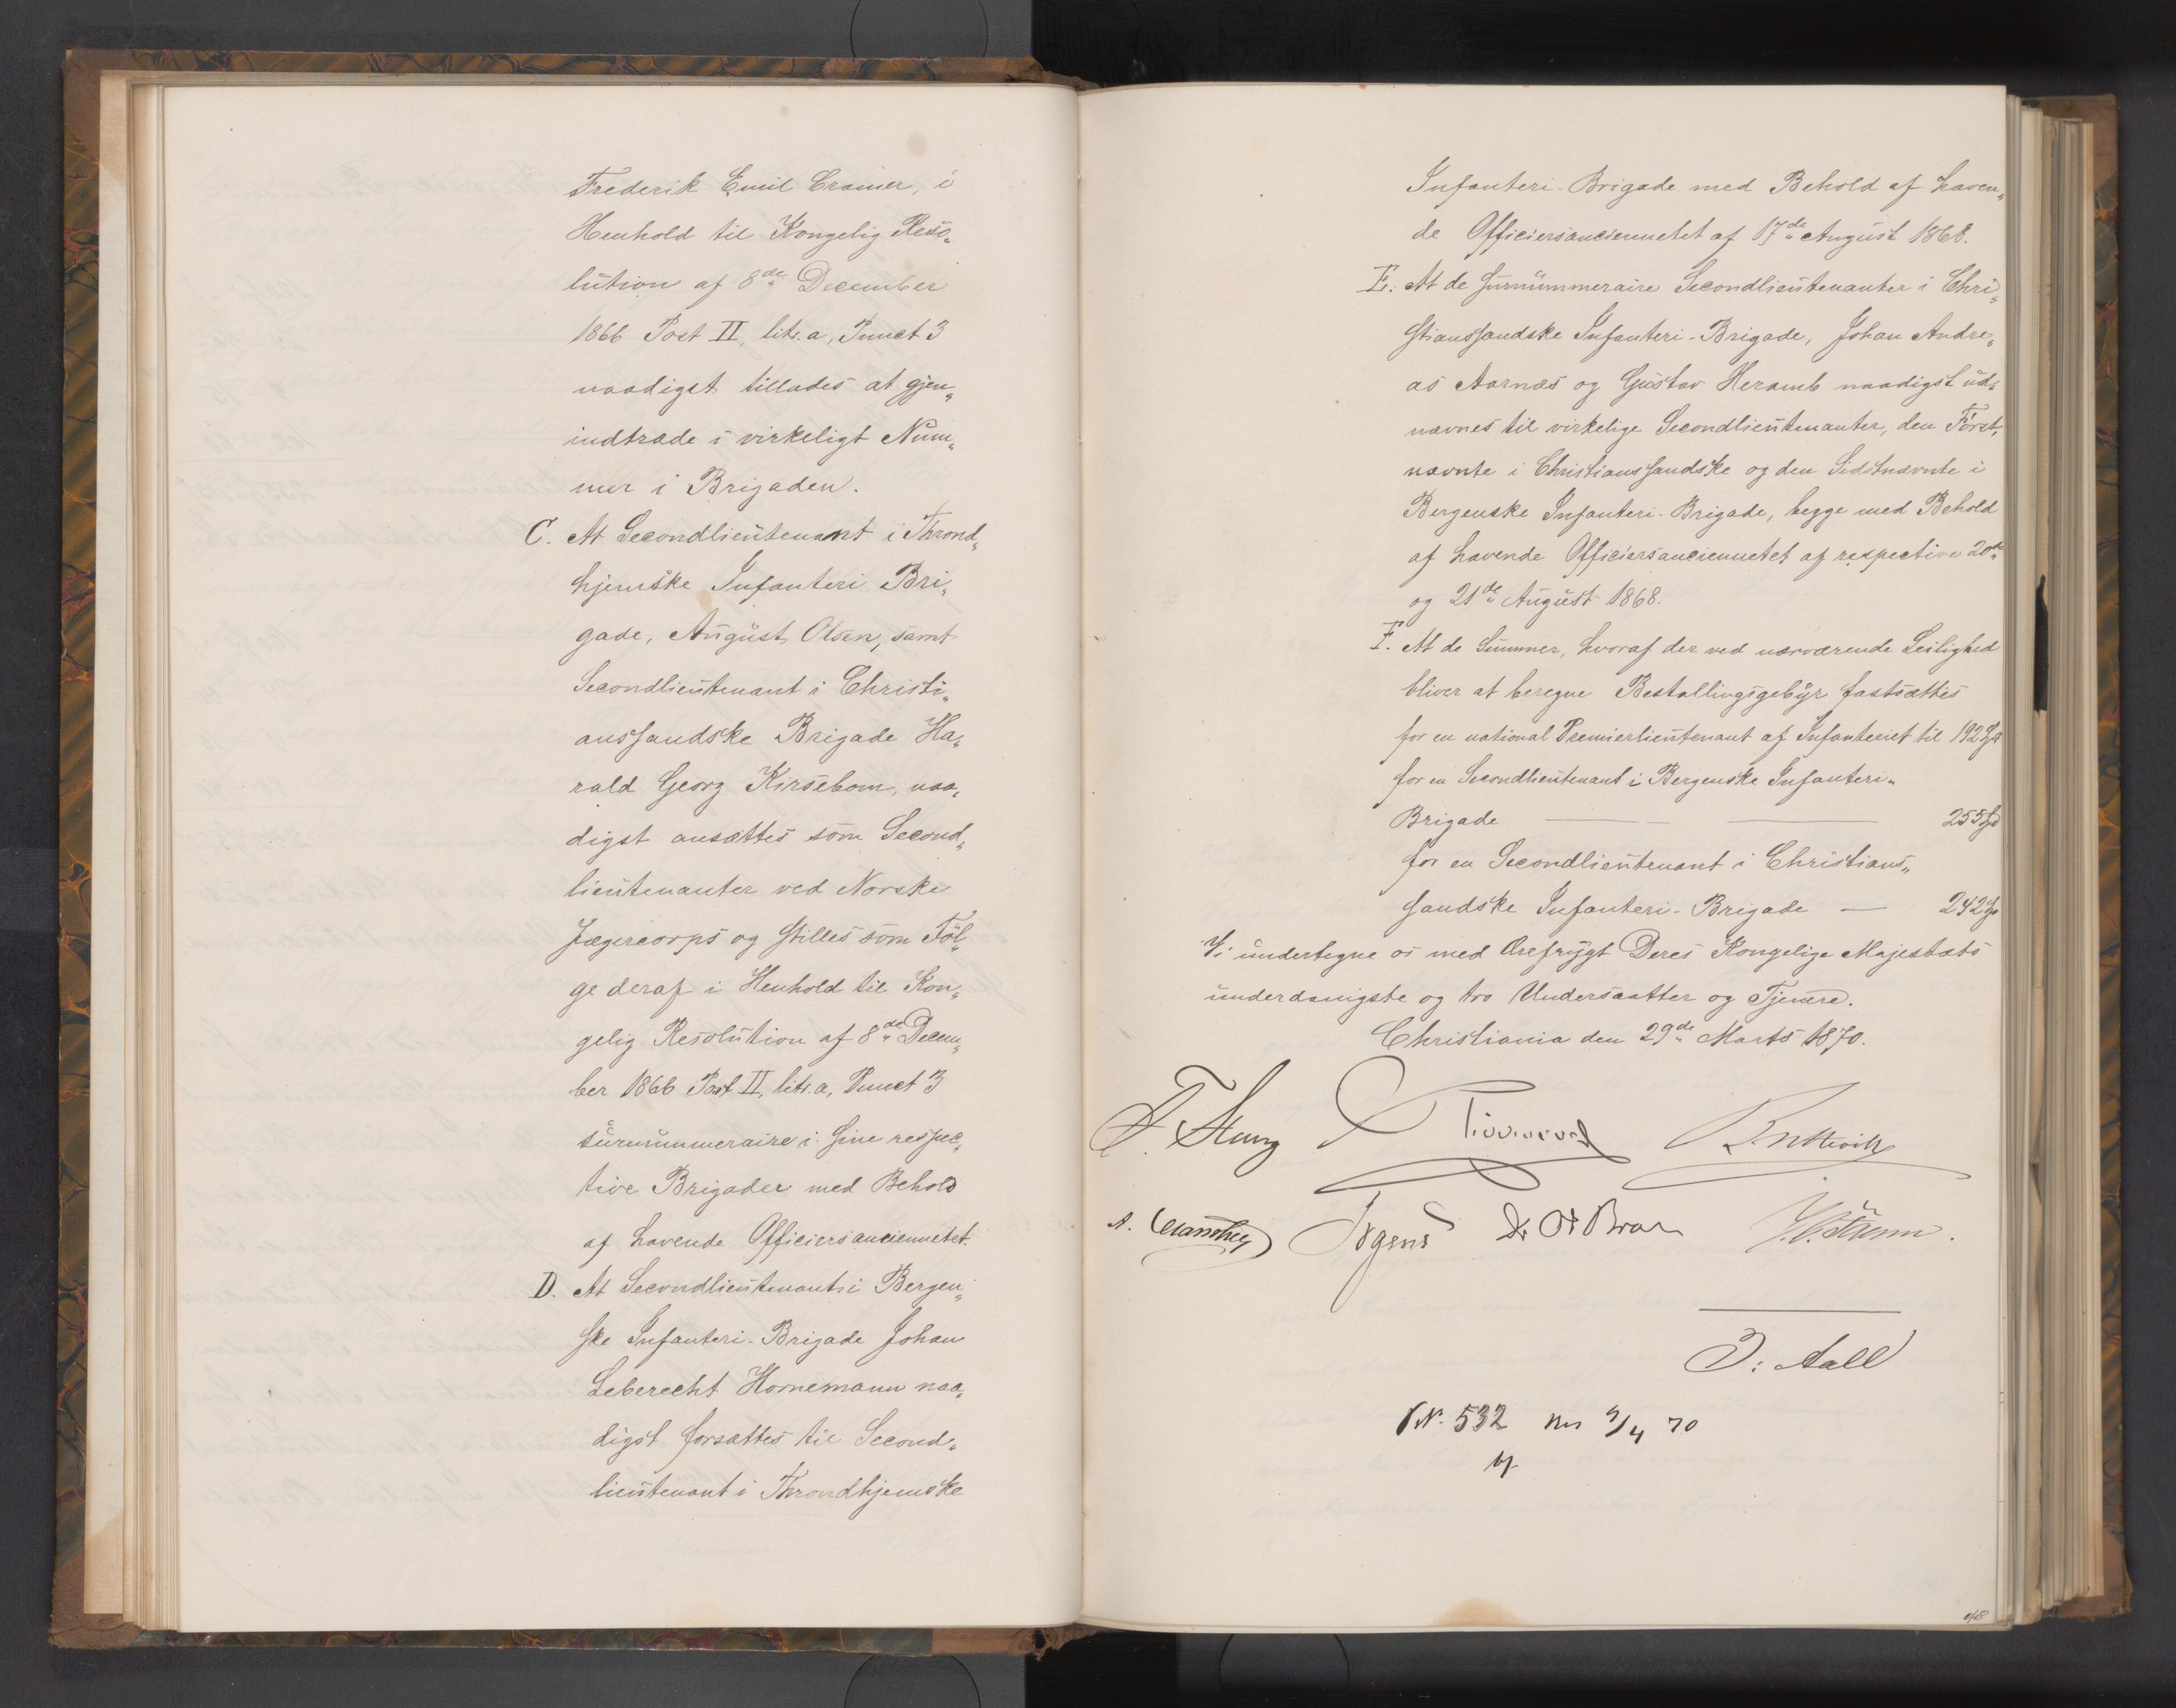 Frederik Emil Cramer, i
Henhold til Kongelig Reso„
lution af 8de December
1866 Post II, litr. a, Punct 3
naadigst tillades at gjen„
indtræde i virkeligt Num„
mer i Brigaden.
C. At Secondlieutenant i Thrond„
hjemske Infanteri Bri„
gade, August Olsen, samt
Secondlieutenant i Christi„
anssandske Brigade Ha„
rald Georg Kirsebom, naa„
digst ansættes som Second„
lieutenanter ved Norske
Jægercorps og stilles som Føl„
ge deraf i Henhold til Kon„
gelig Resolution af 8de Decem„
ber 1866 Post II, litr. a, Punct 3
surnummeraire i sine respec„
tive Brigader med Behold
af havende Officiersanciennetet.
D. At Secondlieutenant i Bergen„
ske Infanteri-Brigade Johan
Leberecht Hornemann naa„
digst forsættes til Second„
lieutenant i Throndhjemske
Infanteri-Brigade med Behold af haven„
de Officiersanciennetet af 17de August 1868.
E. At de surnummeraire Secondlieutenanter i Chri„
stianssandske Infanteri-Brigade, Johan Andre„
as Aarnæs og Gustav Heramb naadigst ud„
nævnes til virkelige Secondlieutenanter, den Først„
nævnte i Christianssandske og den Sidstnævnte i
Bergenske Infanteri-Brigade, begge med Behold
af havende Officiersanciennetet af respective 20de
og 21de August 1868.
F. At de Summer, hvoraf der ved nærværende Leilighed
bliver at beregne Bestallingsgebyr fastsættes
for en national Premierlieutenant af Infanteriet til 192
for en Secondlieutenant i Bergenske Infanteri„
Brigade — — 255
for en Secondlieutenant i Christians„
sandske Infanteri-Brigade — 242
Vi undertegne os med Ærefrygt Deres Kongelige Majestæts
underdanigste og tro Undersaatter og Tjenere.
Christiania den 29de Marts 1870.
F. Stang
A. Irgens Dr O Broch
J: Aall
N. 532 4/4 70